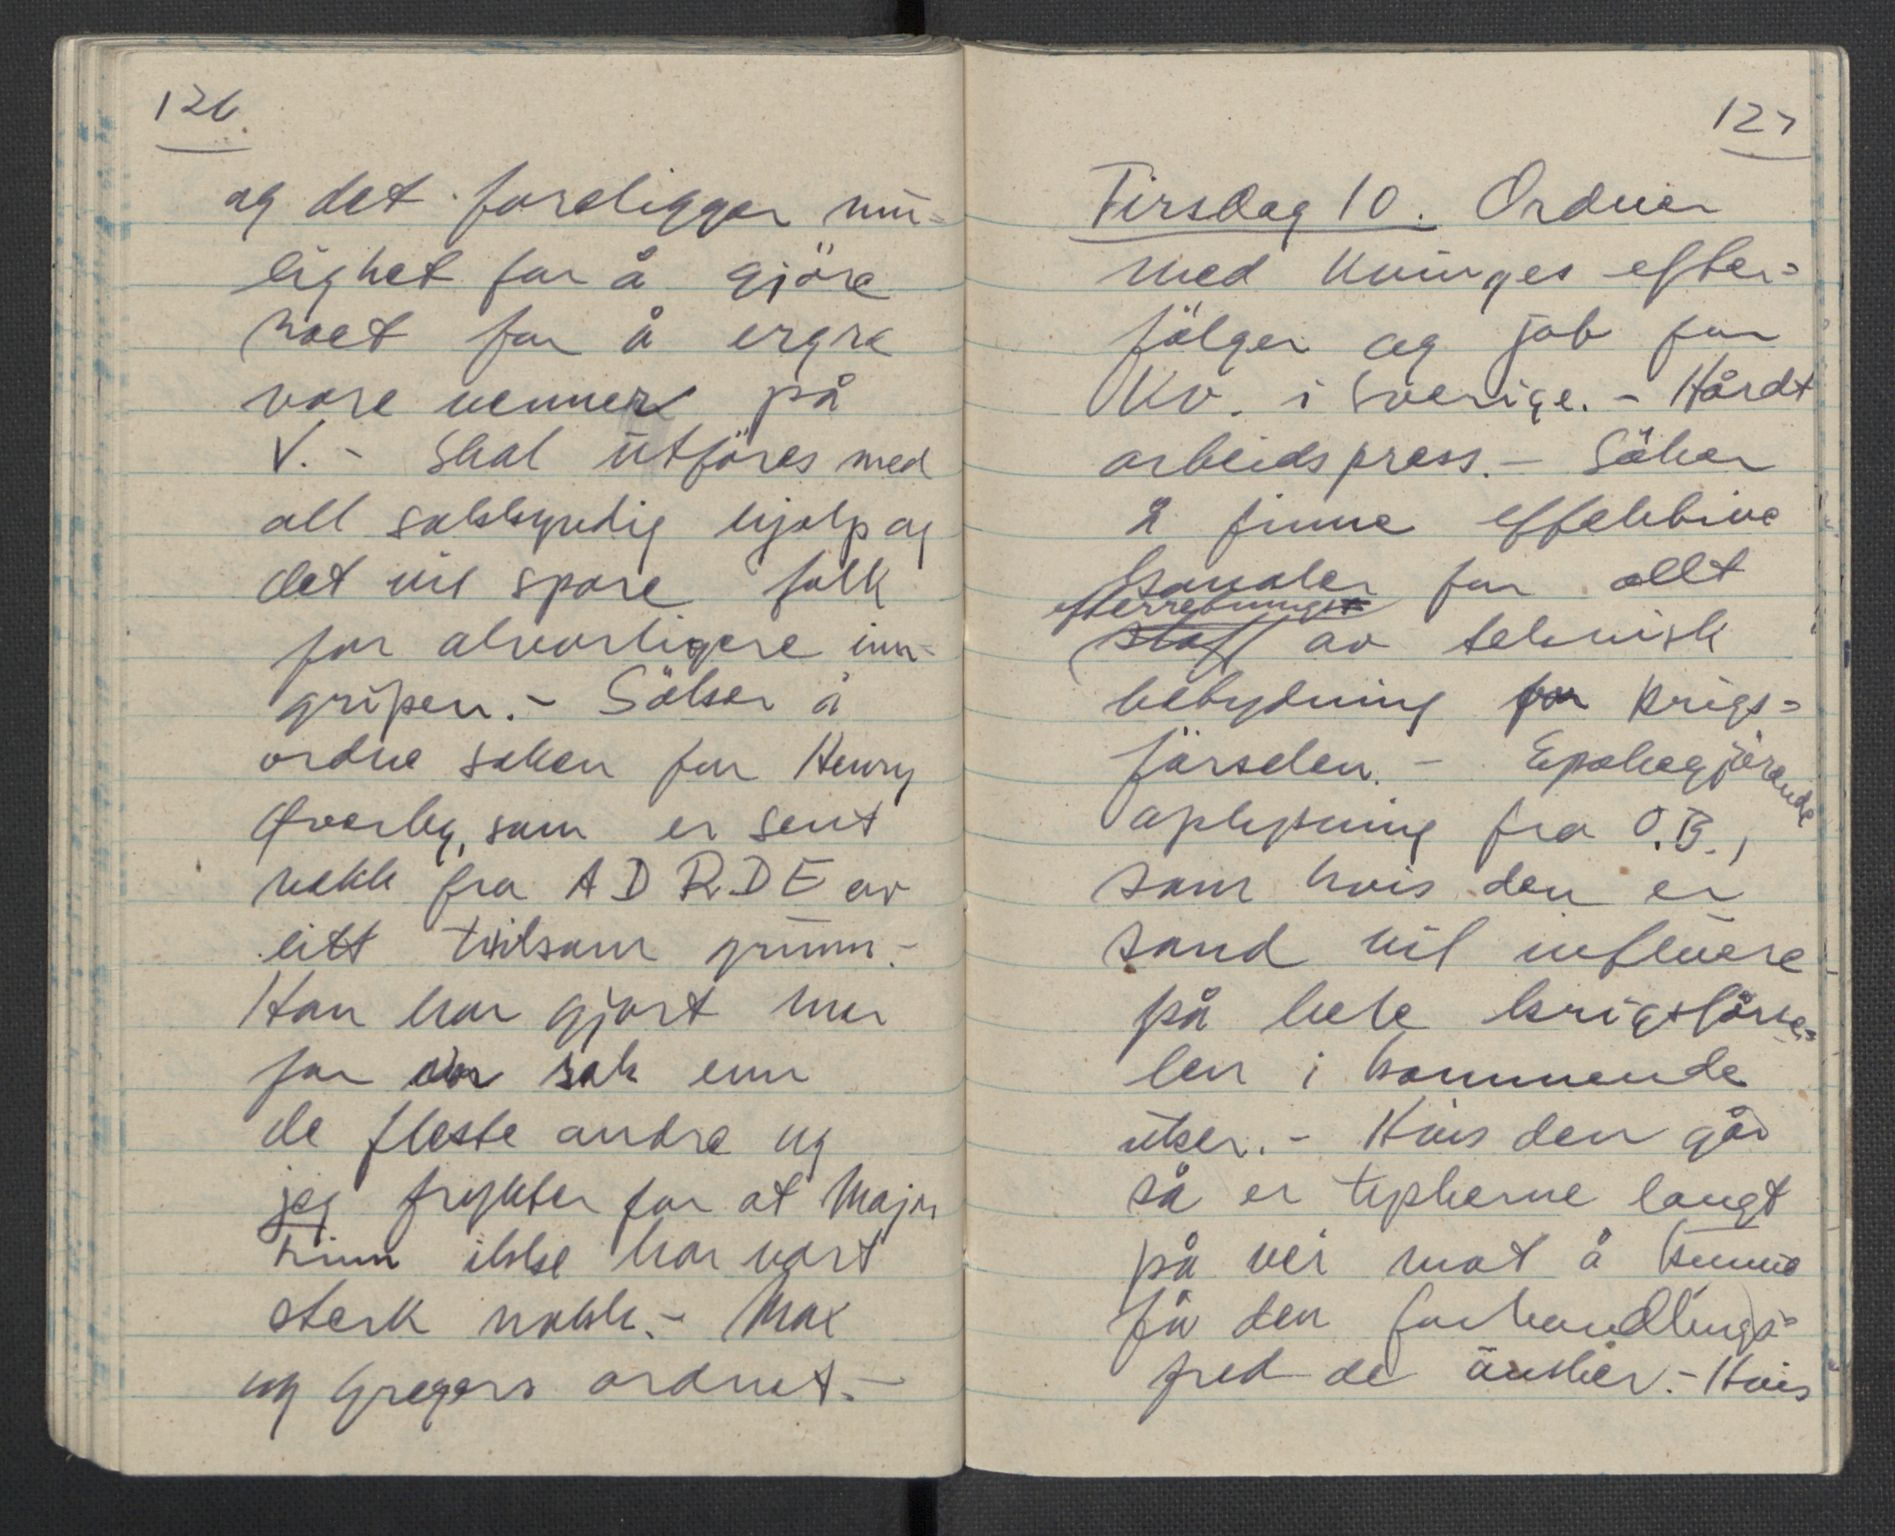 126.
og det foreligger mu-
lighet for å gjöre
noet for å ergre
vore venner på
V. - Skal utföres med
all sakkyndig hjelp og
det vil spare folk
for alvorligere inn-
gripen. - Söker å
ordne saken for Henry
Øverby, som er sent
vekk fra ADRDE av
litt tvilsom grunn. -
Han har gjort mer
for vor sak enn
de fleste andre og
jeg frykter for at Major
Finn ikke har vært
sterk nokk. - Max
og Gregers ordnet. -
127
Tirsdag 10. Ordner
med Kvinges efter=
fölger og job for
Kv. i Sverige. - Hårdt
arbeidspress. - Söker
å finne effektive
kanaler for allt
efterretnings
stoff av teknisk
betydning for krigs=
förselen. - Epokegjörende
oplysning fra O.B.,
som hvis den er
sand vil influere
på hele krigsförse=
len i kommende
uker. - Hvis den går
så er tyskerne langt
på vei mot å kunne
få den forhandlings=
fred de önsker. - Hvis